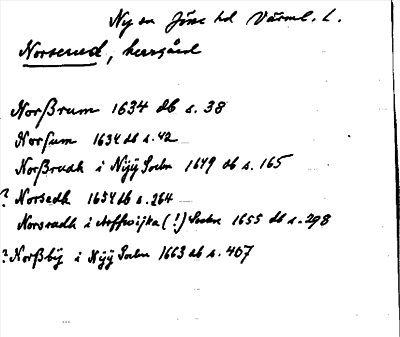 Ny sn Jösse hd Värml. l.
Norserud, herrgård
Norßrum 1634 db s. 38
Norsum 1634 db s. 42
Norßrudh i Nÿÿ Sochn 1649 db s. 165
? Norsedh 1654 db s. 264
Norsradh i Arffwijka (!) Sochn 1655 db s. 298
? Norßbÿ i Nÿÿ Sochn 1663 db s. 407